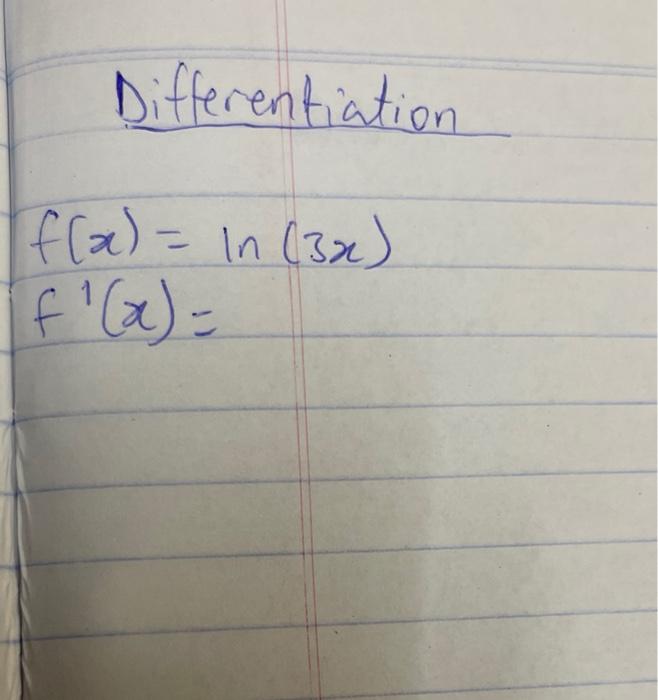 Differentiation
f(x) = ln (3x)
f'(x) =